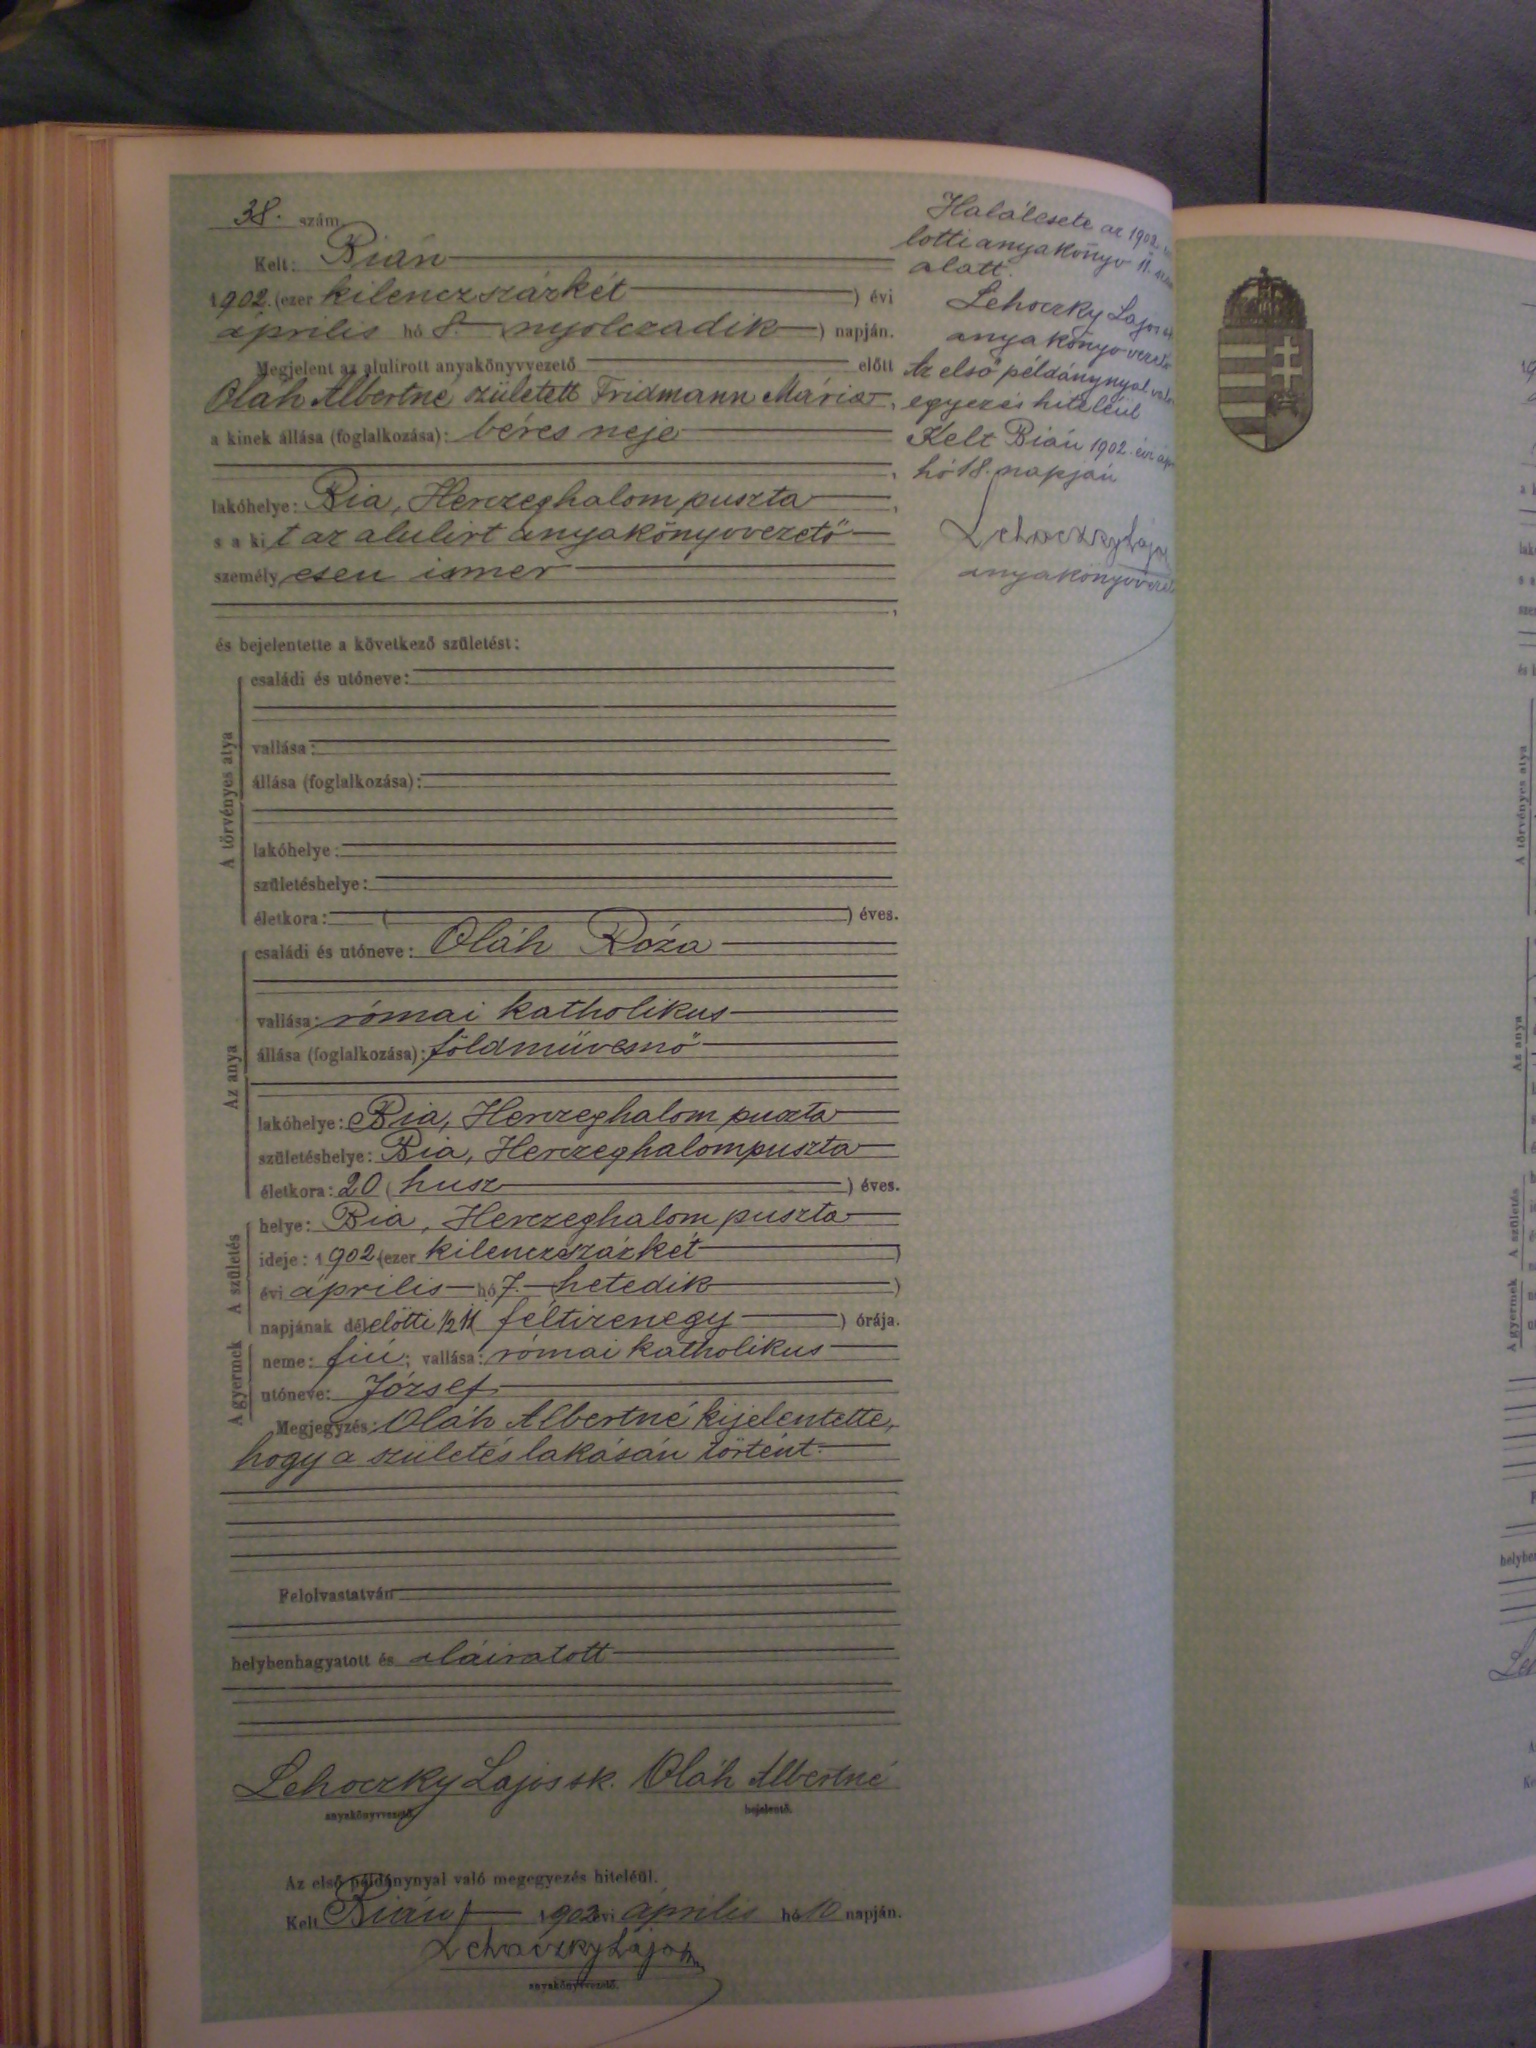 38. szám
Kelt: Bián
1902. (ezer kilenczszázkét ) évi
április hó 8. nyolczadik ) napján.
Megjelent az alulírott anyakönyvvezető előtt
Oláh Albertné született Fridmann Mária,
a kinek állása (foglalkozása): béres neje
lakóhelye: Bia, Herczeghalom puszta,
s a kit az alulirt anyakönyvvezető
személyesen ismer
,
és bejelentette a következő születést:
A törvényes atya
családi és utóneve:
vallása:
állása (foglalkozása):
lakóhelye:
születéshelye:
életkora: ( ) éves.
Az anya
családi és utóneve: Oláh Róza
vallása: római katholikus
állása (foglalkozása): földmüvesnő
lakóhelye: Bia, Herczeghalom puszta
születéshelye: Bia, Herczeghalompuszta
életkora: 20 ( husz ) éves.
A születés
helye: Bia, Herczeghalom puszta
ideje: 1902 (ezer kilenczszázkét )
évi április hó 7. hetedik )
napjának délelőtti ½11 ( féltizenegy ) órája.
A gyermek
neme: fiú; vallása: római katholikus
utóneve: József
Megjegyzés: Oláh Albertné kijelentette,
hogy a születés lakásán történt.
Felolvastatván
helybenhagyatott és aláiratott
Lehoczky Lajos sk. Oláh Albertné
anyakönyvvezető. bejelentő.
Az első példánynyal való megegyezés hiteléül.
Kelt Bián, 1902 évi április hó 10 napján.
Lehoczky Lajos
anyakönyvvezető.
Halálesete az 1902
lotti anyakönyv 11.
alatt.
Lehoczky Lajos
anyakönyvvezető
Az első példánynyal való
egyezés hiteléül
Kelt Bián 1902. évi
hó 18. napján
Lehoczky Lajos